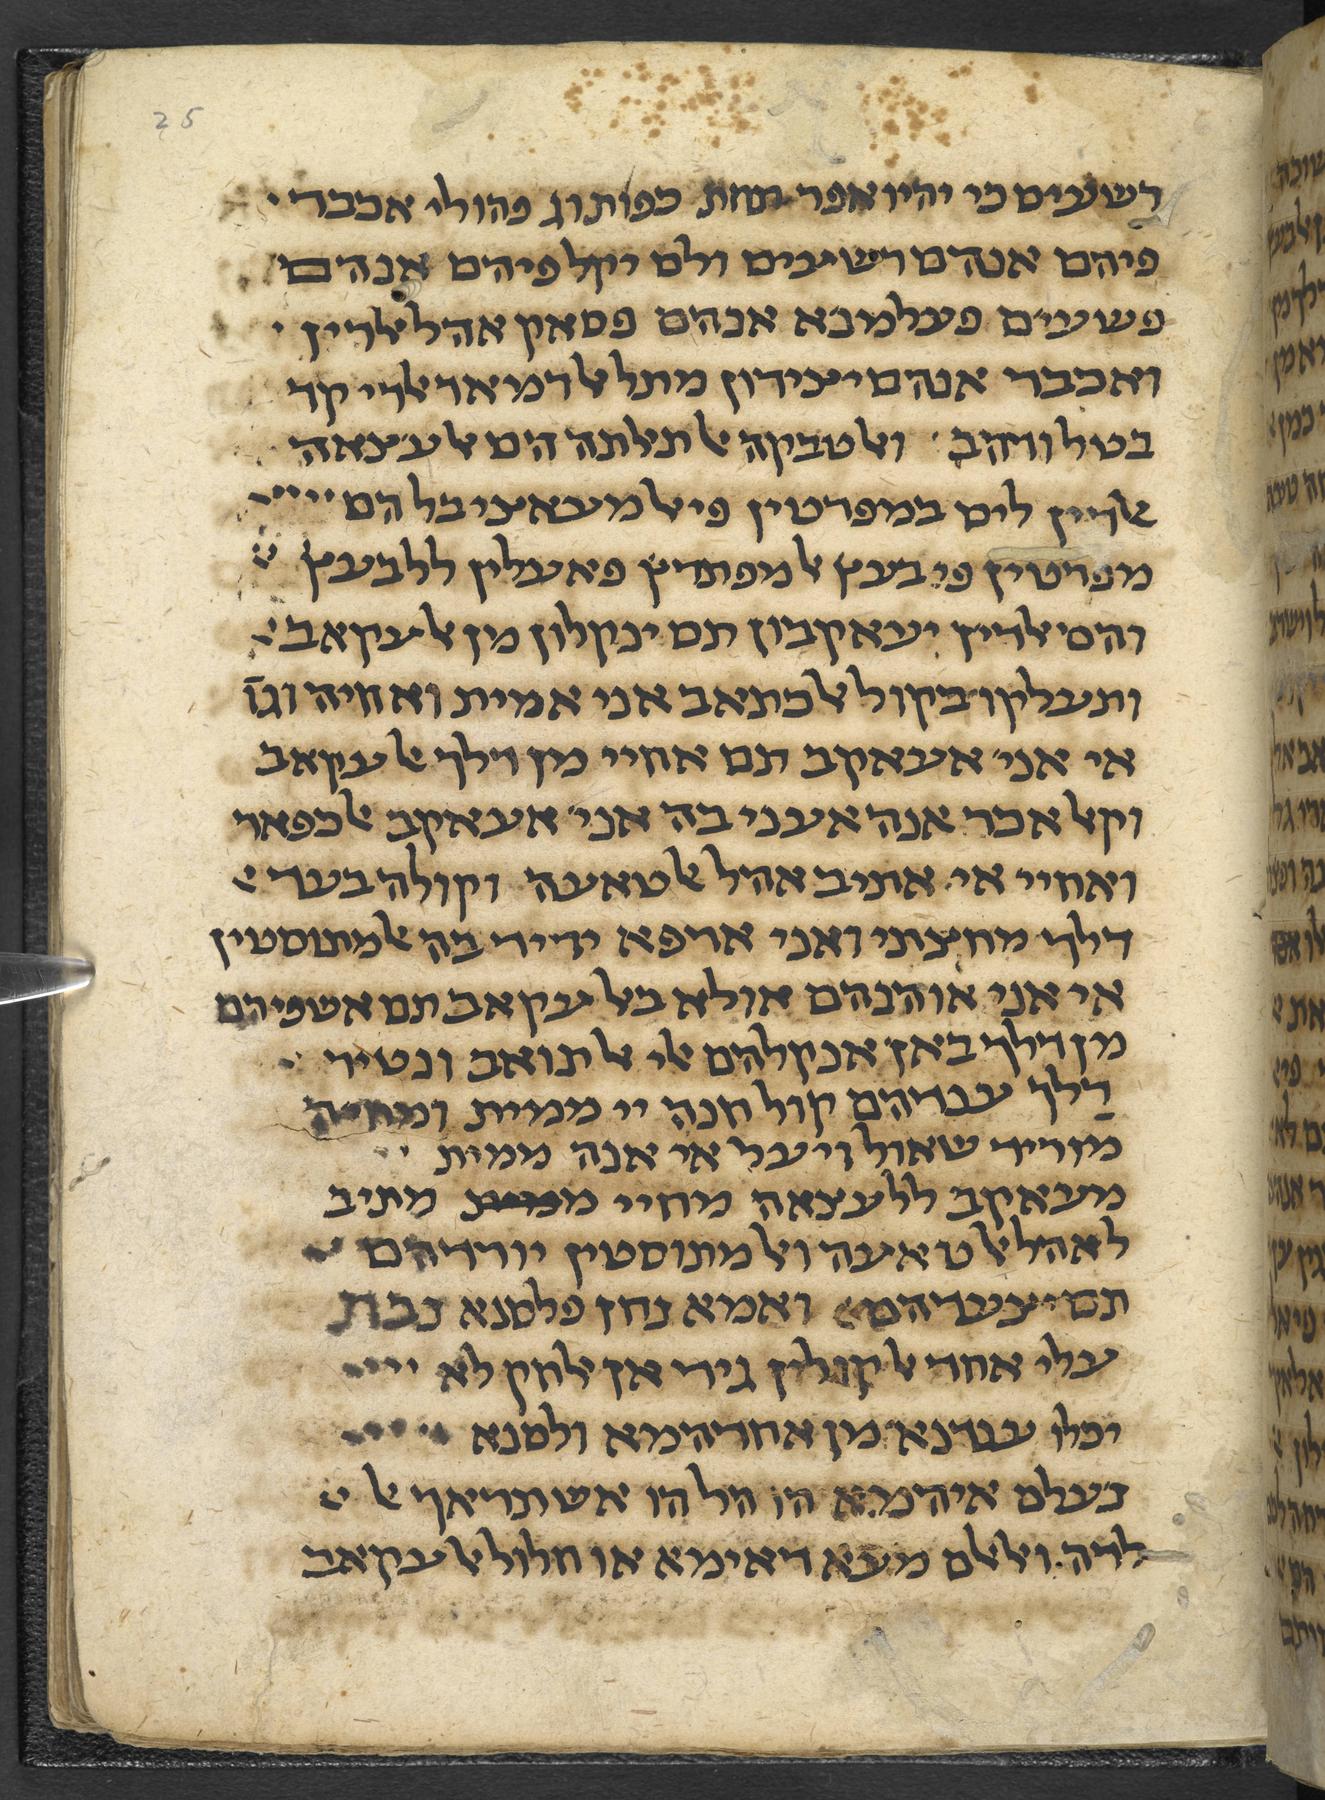 25
רשעים כי יהיו אפר תחת כפות וג פהולי אכבר
פיהם אנהם רשעים ולם יקל פיהם אנהם
פשעים פעלמנא אנהם פסאק אהל אלדין
ואכבר אנהם יצירון מתל אלרמאד אלדי קד
בטל ודהב ואלטבקה אלתאלתה הם אלעצאה
אלדין ליס במפרטין פי אלמעאצי בל הם
מפרטין פי בעץ אלמפתרץ פאעלין ללבעץ
והם אלדין יעאקבון תם ינקלון מן אלעקאב
ותעלקו בקול אלכתאב אני אמית ואחיה וגו
אי אני אעאקב תם אחיי מן דלך אלעקאב
וקאל אכר אנה אעני בה אני אעאקב אלכפאר
ואחיי אי אתיב אהל אלטאעה וקולה בעד
דלך מחצתי ואני ארפא יריד בה אלמתוסטין
אי אני אוהנהם אולא באלעקאב תם אשפיהם
מן דלך באן אנקלהם אלי אלתואב ונטיר
דלך ענדהם קול חנה ייי ממית ומחיה
מוריד שאול ויעל אי אנה ממית
מעאקב ללעצאה מחיי מתיב
לאהל אלטאעה ואלמתוסטין יורדהם
תם יצעדהם ואמא נחן פלסנא נבת
עלי אחד אלקולין גיר אן אלחק לא
יכלו ענדנא מן אחדהמא ולסנא
נעלם איהמא הו הל הו אשתראך אל
לדה ואלאלם מעא דאימא או חלול אלעקאב